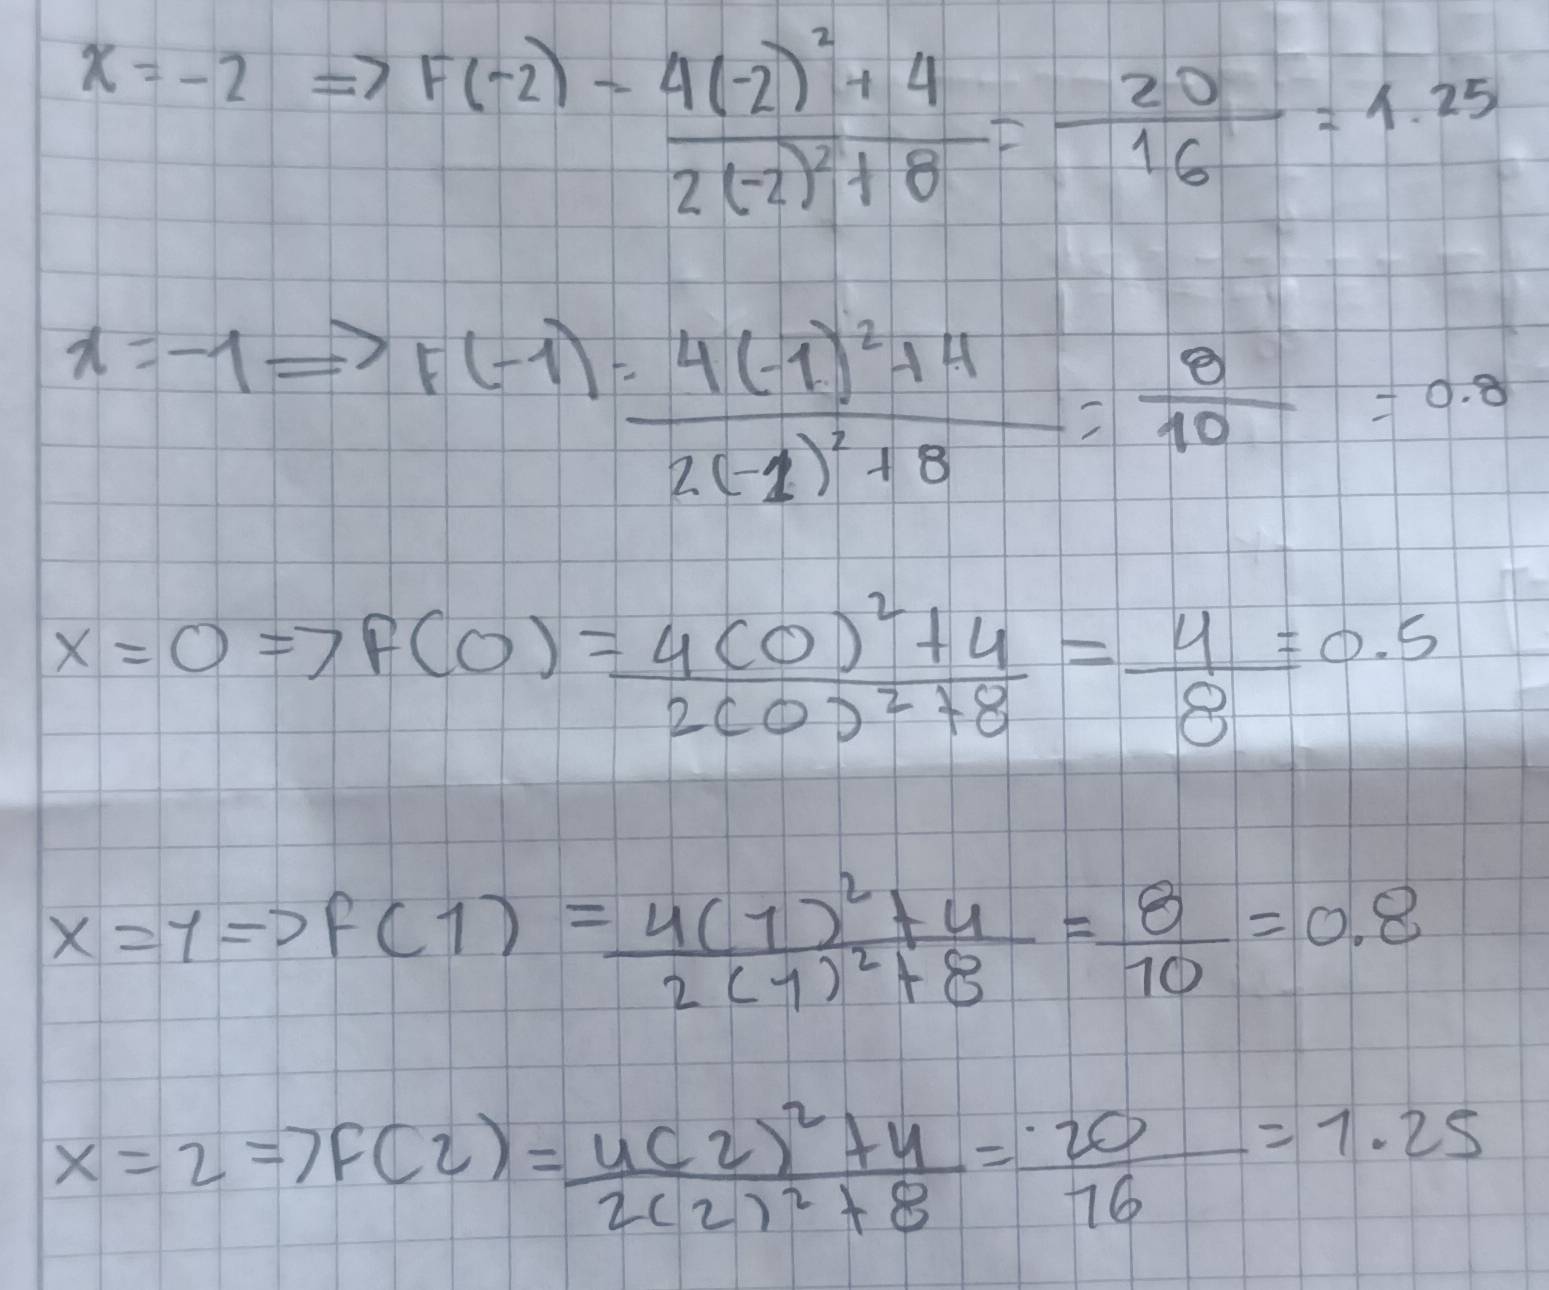 x = -2 => F(-2) - 4(-2)² + 4 / 2(-2)² + 8 = 20 / 16 = 1.25
x = -1 => F(-1) = 4(-1)² + 4 / 2(-1)² + 8 = 8 / 10 = 0.8
x = 0 => F(0) = 4(0)² + 4 / 2(0)² + 8 = 4 / 8 = 0.5
x = 1 => F(1) = 4(1)² + 4 / 2(1)² + 8 = 8 / 10 = 0.8
x = 2 => F(2) = 4(2)² + 4 / 2(2)² + 8 = 20 / 16 = 1.25